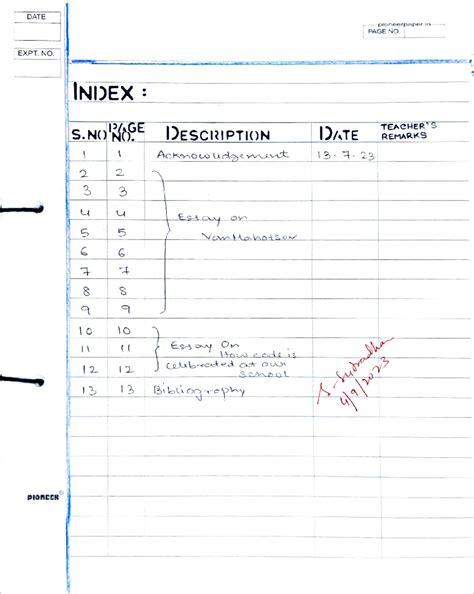 DATE
EXPT. NO.
pioneerpaper.in
PAGE NO.
INDEX :
S.NO PAGE NO. DESCRIPTION DATE TEACHER'S REMARKS
1 1 Acknowledgement 13.7.23
2 2
3 3
4 4 Essay on
5 5 VanMahotsav
6 6
7 7
8 8
9 9
10 10
11 11 Essay On
How code is
12 12 celebrated at our
school
13 13 Bibliography
4/9/2023
PIONEER